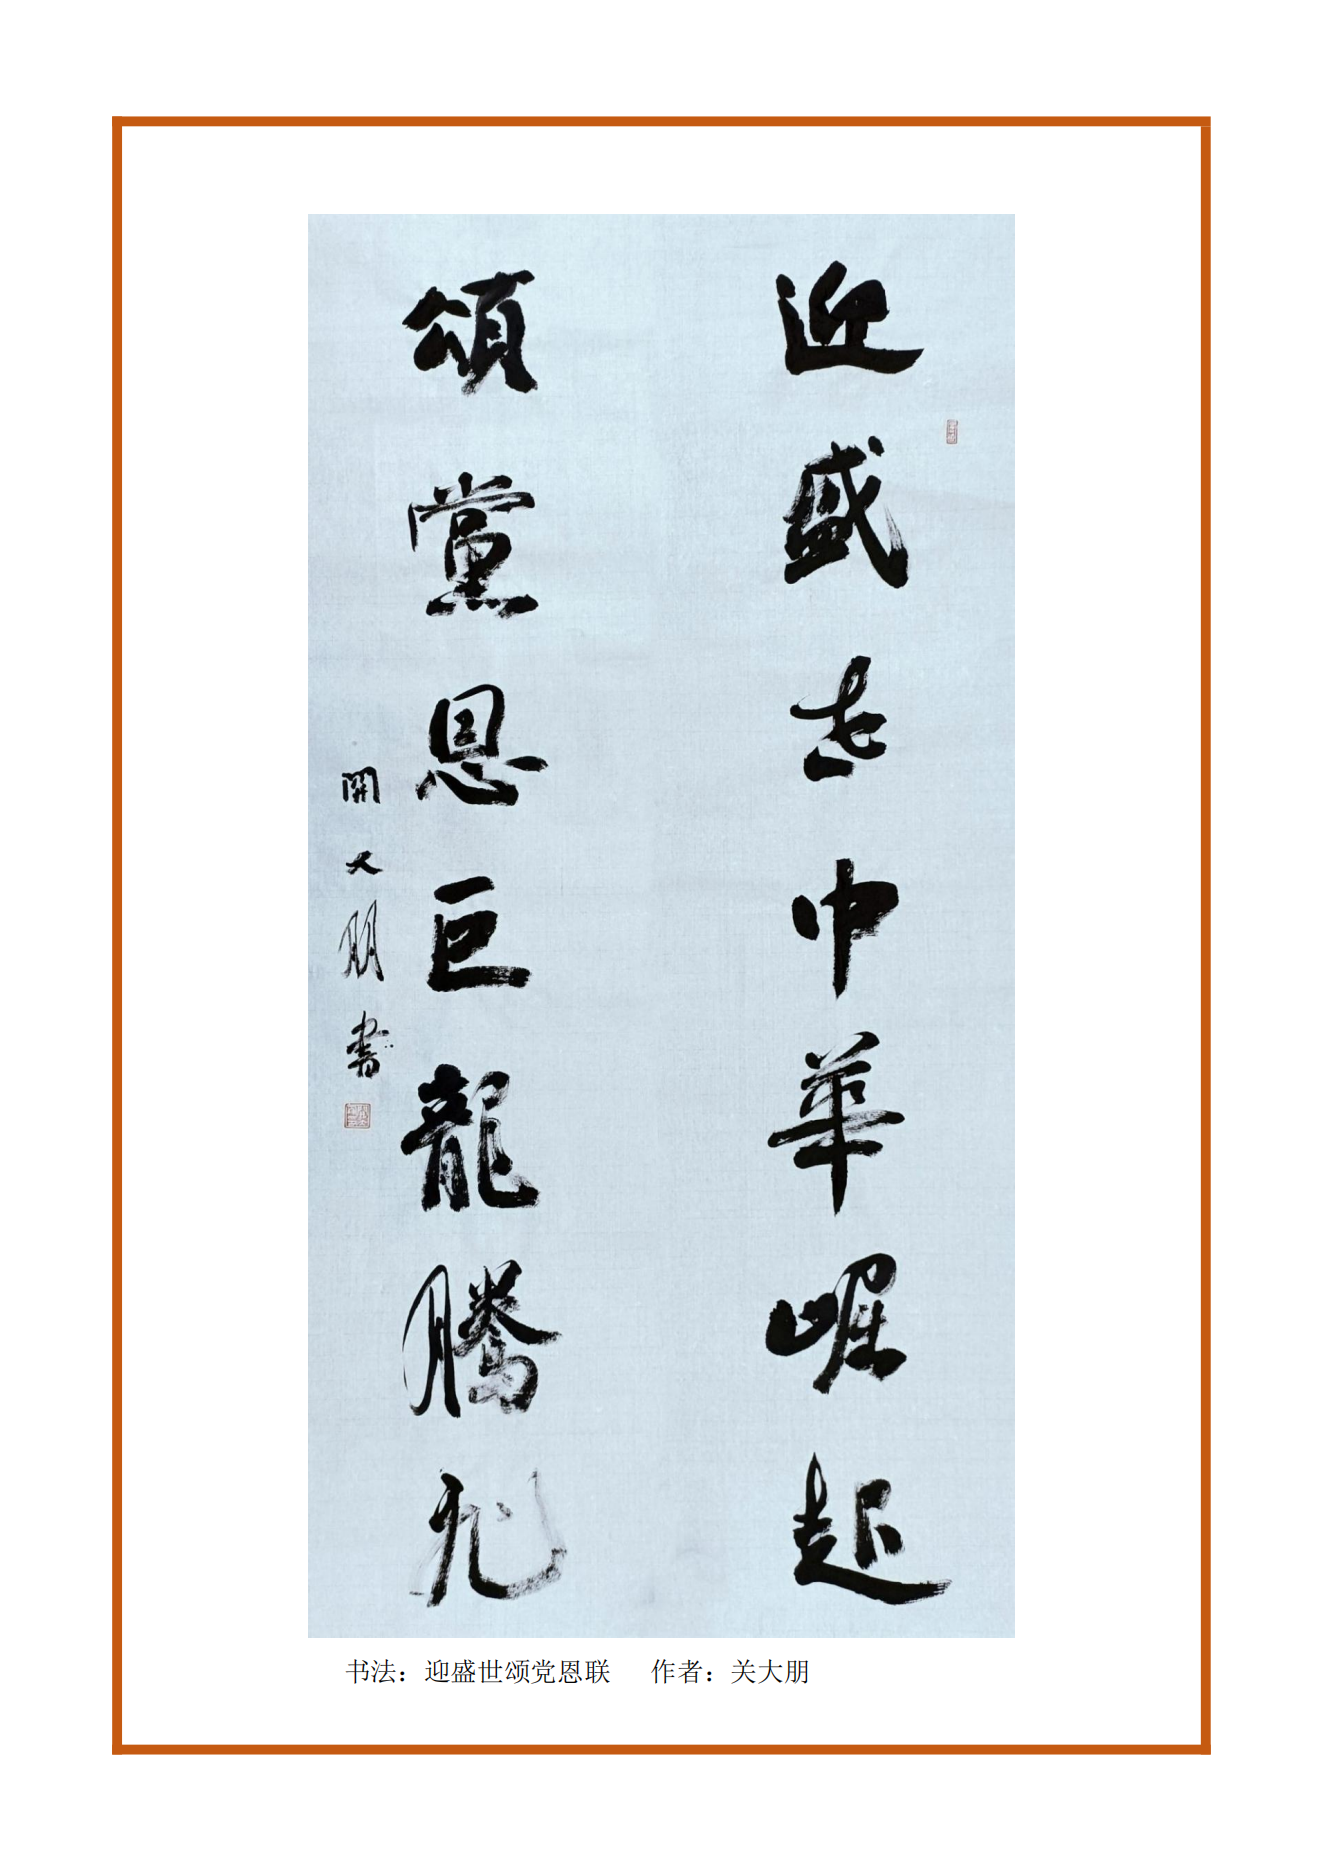 迎盛世中華崛起
頌黨恩巨龍騰飛
關大朋書
书法：迎盛世颂党恩联 作者：关大朋